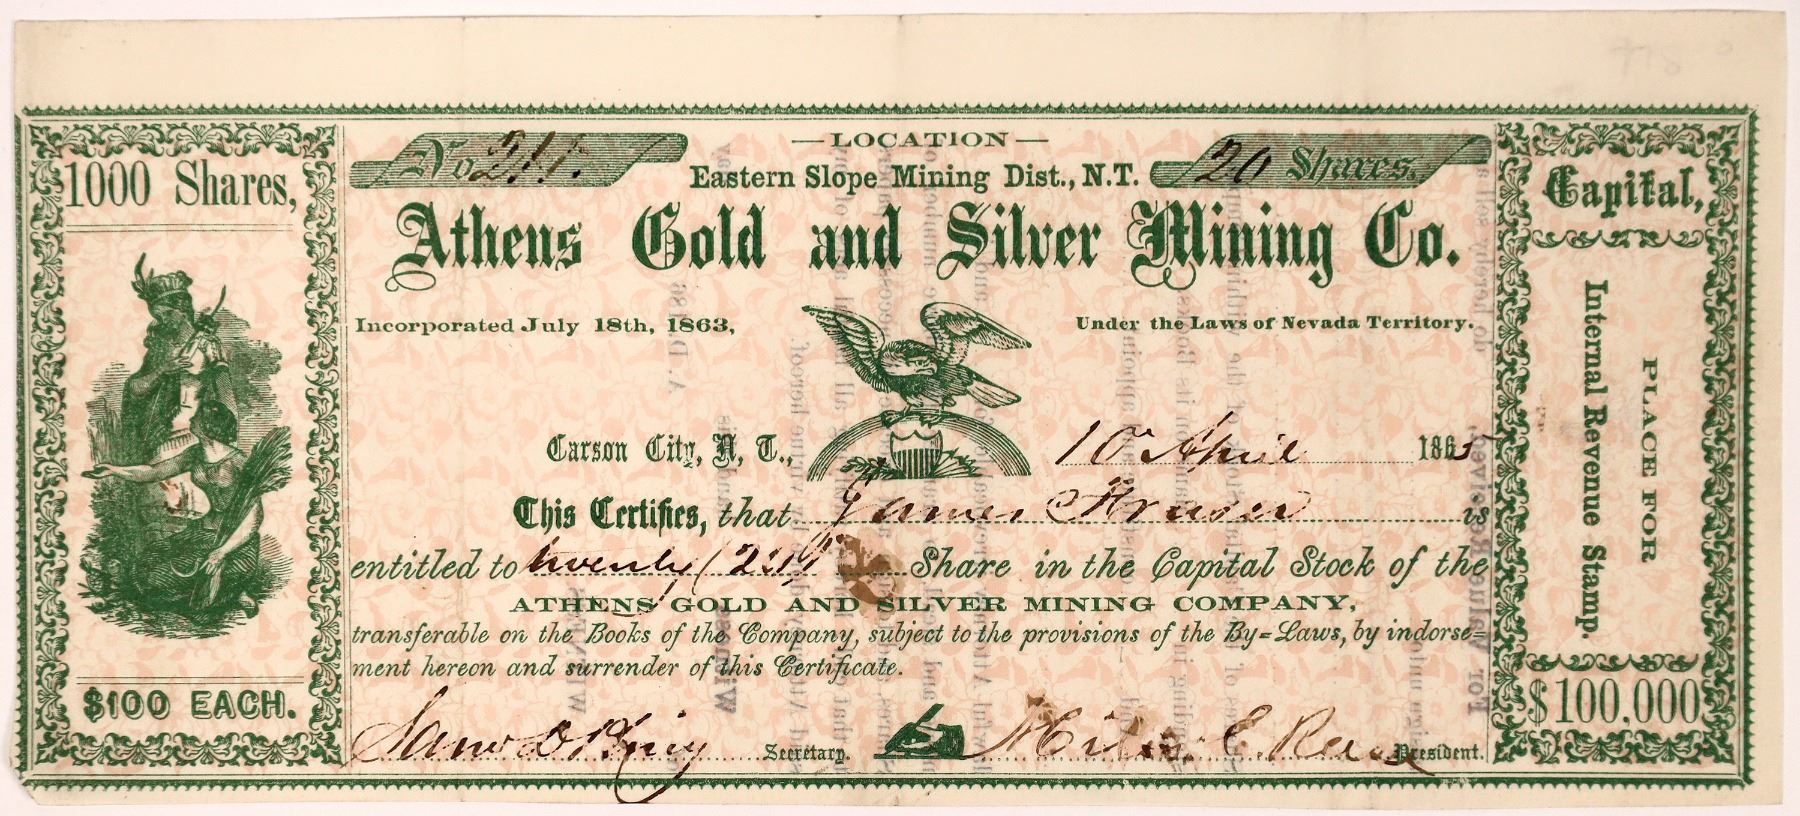 1000 Shares,
$100 EACH.
No 211.
— LOCATION —
Eastern Slope Mining Dist., N.T.
20 Shares.
Athens Gold and Silver Mining Co.
Incorporated July 18th, 1863,
Under the Laws of Nevada Territory.
Carson City, N. T., 10 April 1865
This Certifies, that James Fraser is
entitled to twenty (20) Share in the Capital Stock of the
ATHENS GOLD AND SILVER MINING COMPANY,
transferable on the Books of the Company, subject to the provisions of the By=Laws, by indorse=
ment hereon and surrender of this Certificate.
Secretary.
President.
Capital,
PLACE FOR
Internal Revenue Stamp.
$100,000